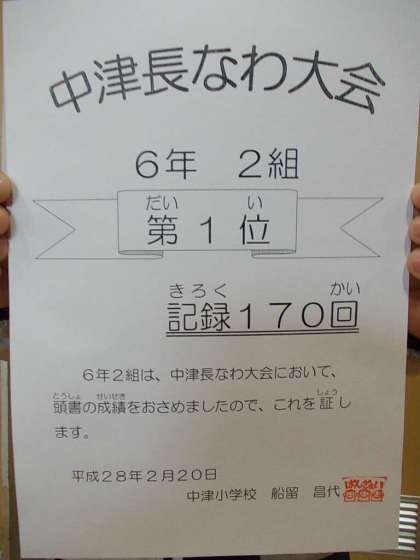 中津長なわ大会
6年 2組
だい い
第1位
きろく かい
記録170回
6年2組は、中津長なわ大会において、
とうしょ せいせき しょう
頭書の成績をおさめましたので、これを証し
ます。
平成28年2月20日
中津小学校 船留 昌代